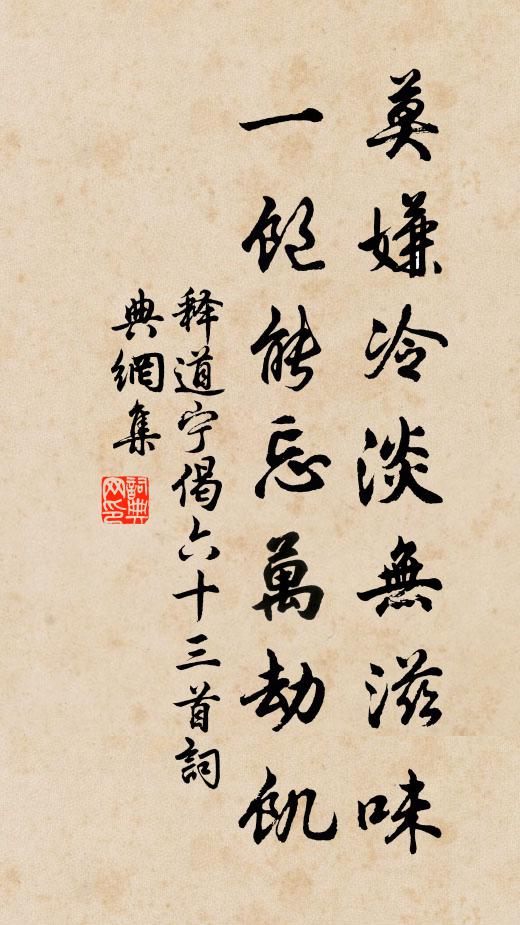 莫嫌冷淡無滋味
一飽能忘萬劫飢
释道宁偈六十三首詞
典網集
詞典網印